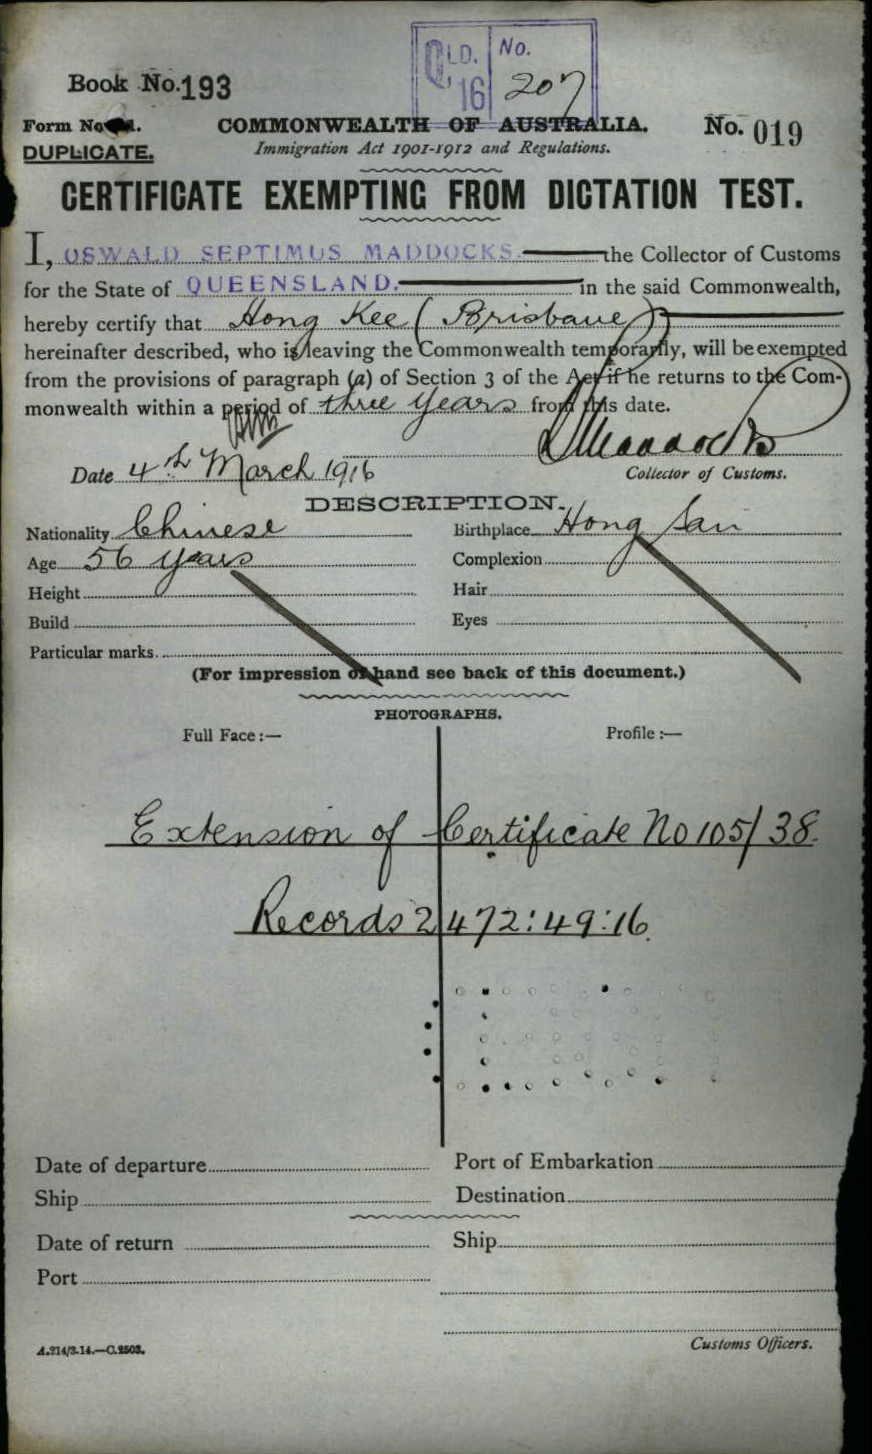 QLD. No.
'16 207
Book No. 193
Form No. 21.
COMMONWEALTH OF AUSTRALIA.
No. 019
DUPLICATE.
Immigration Act 1901-1912 and Regulations.
CERTIFICATE EXEMPTING FROM DICTATION TEST.
I, OSWALD SEPTIMUS MADDOCKS. the Collector of Customs
for the State of QUEENSLAND. in the said Commonwealth,
hereby certify that Hong Kee (Brisbane)
hereinafter described, who is leaving the Commonwealth temporarily, will be exempted
from the provisions of paragraph (a) of Section 3 of the Act if he returns to the Com-
monwealth within a period of three years from this date.
Maddocks
Date 4th March 1916
Collector of Customs.
DESCRIPTION.
Nationality Chinese
Birthplace Hong San
Age 56 years
Complexion
Height
Hair
Build
Eyes
Particular marks.
(For impression of hand see back of this document.)
PHOTOGRAPHS.
Full Face :—
Profile :—
Extension of Certificate No 105/38.
Records 2472:49:16.
Date of departure
Port of Embarkation
Ship
Destination
Date of return
Ship
Port
Customs Officers.
A.214/3.14.—C.2503.